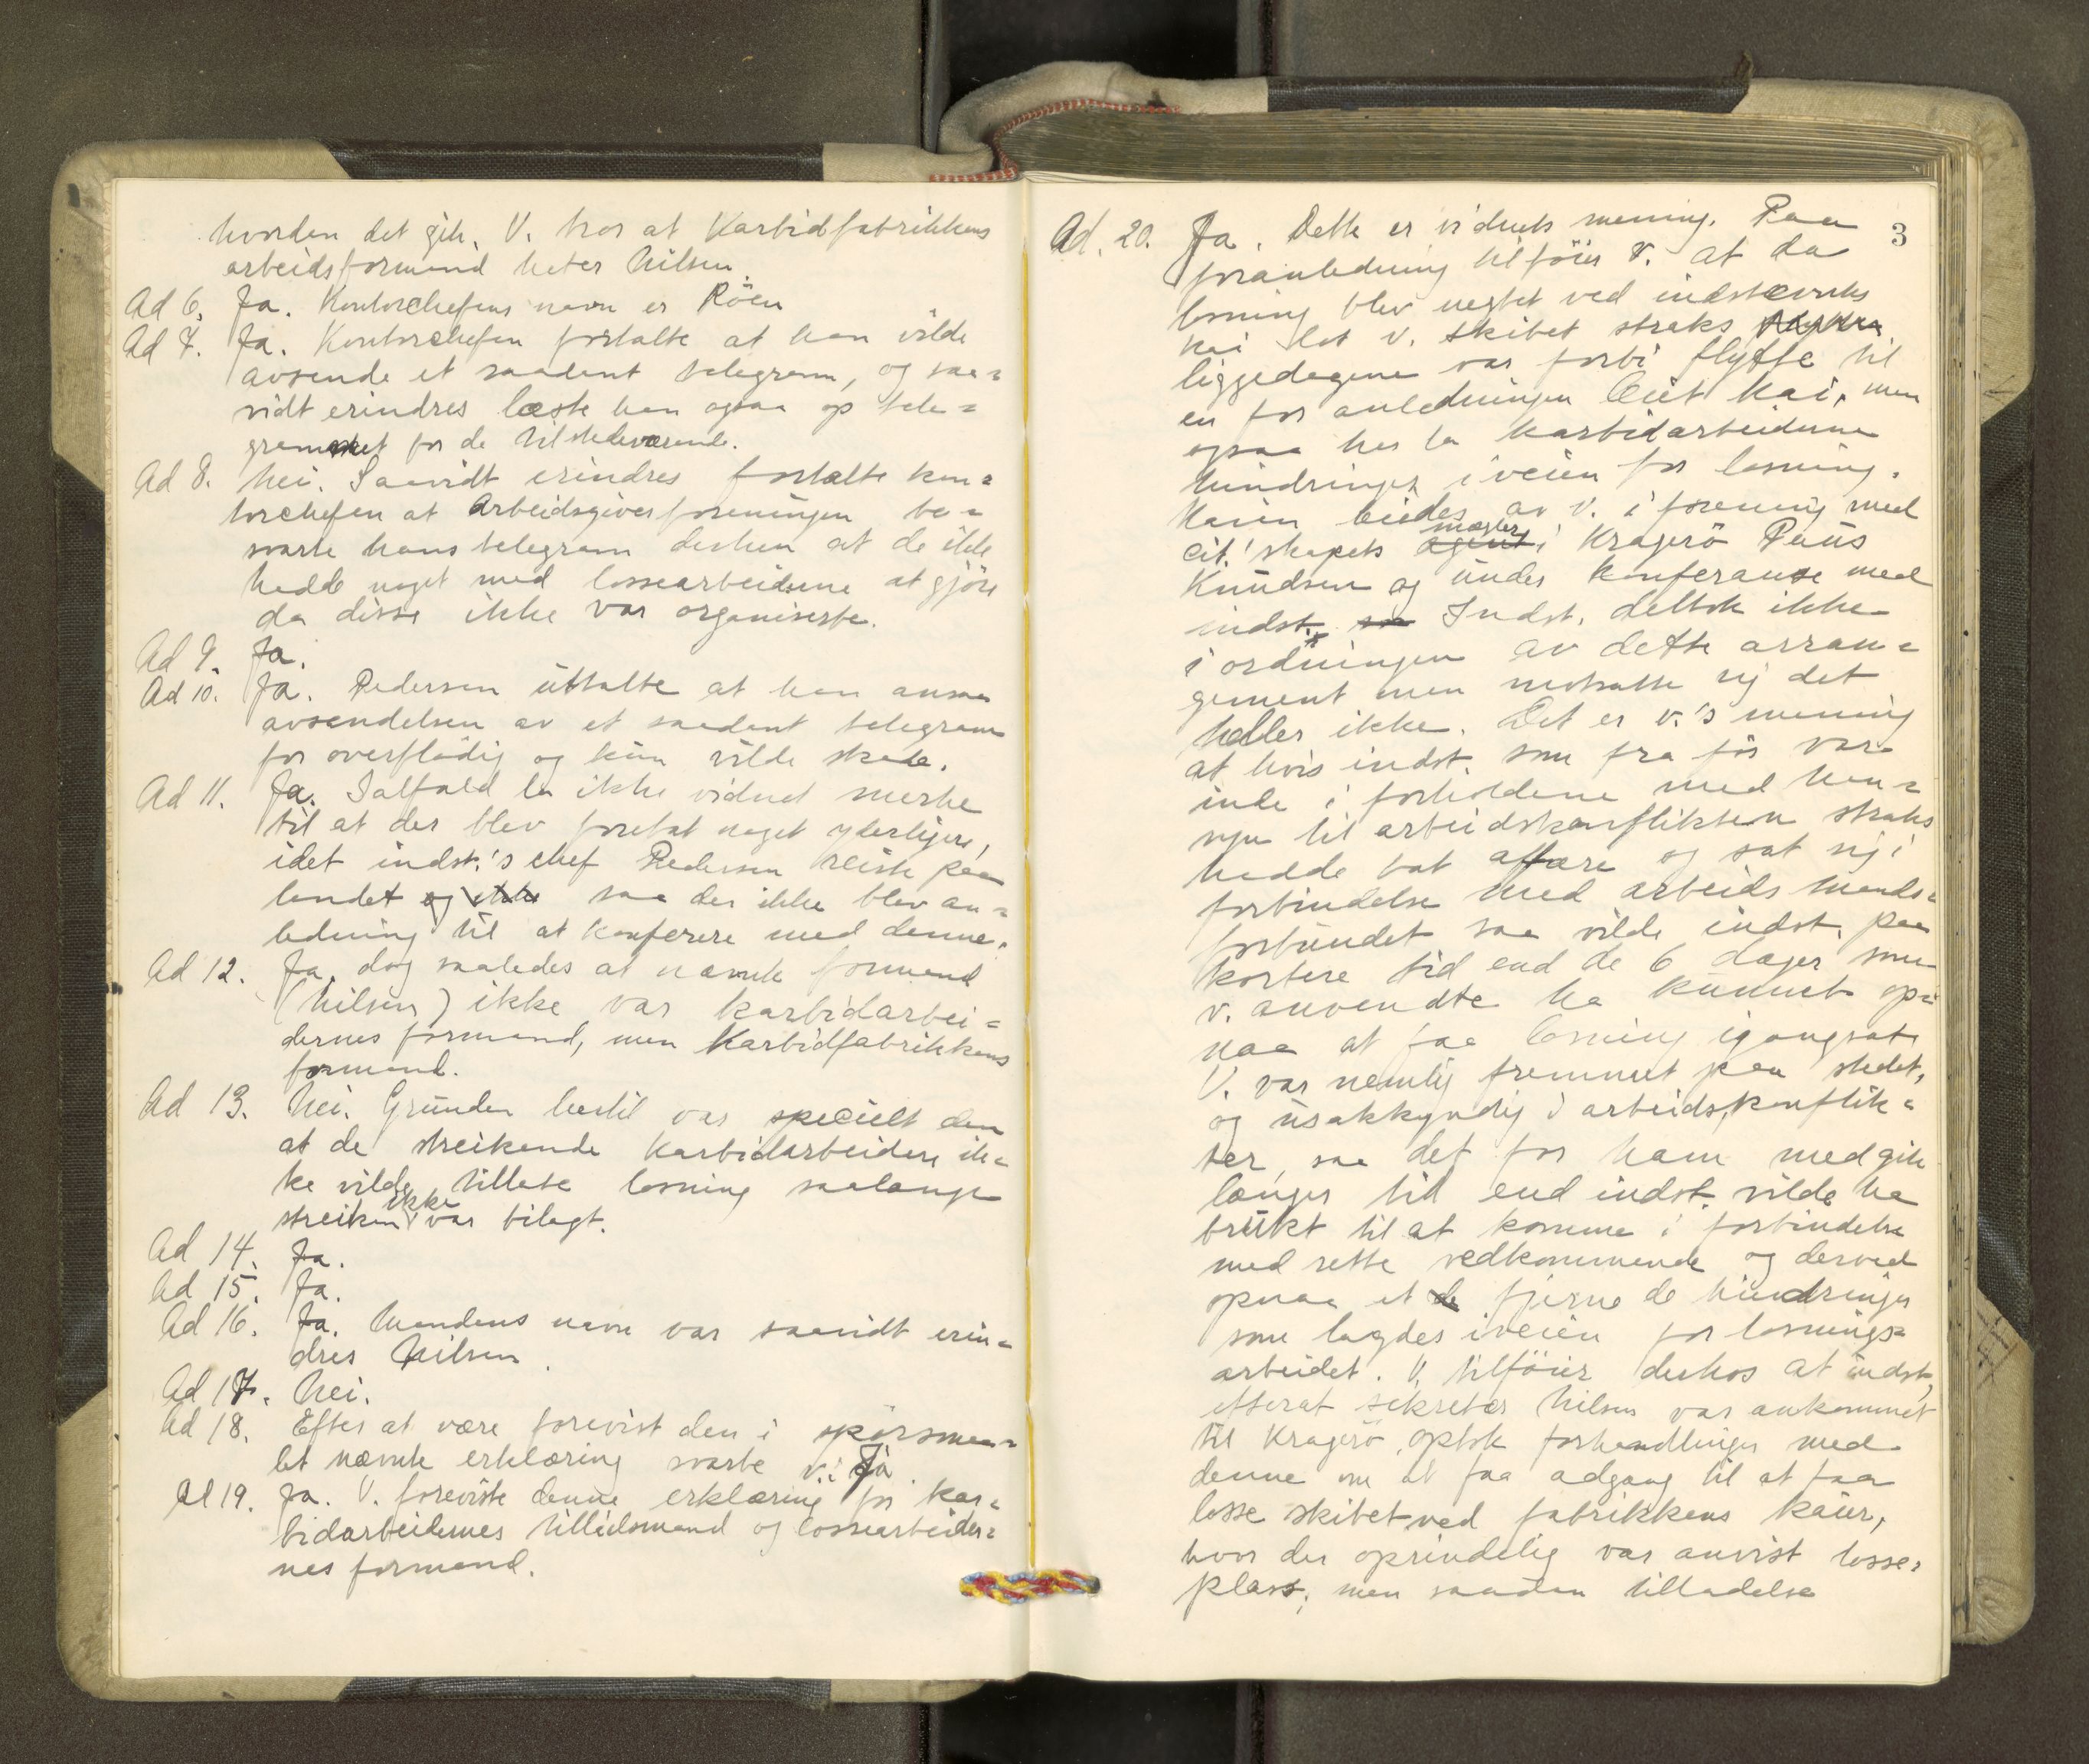 hvorden det gik. V. tror at Karbidfabrikkens
arbeidsformand heter Nilsen.
Ad 6. Ja. Kontorchefens navn er Röen
Ad 7. Ja. Kontorchefen fortalte at han vilde
avsende et saadent telegram, og saa=
vidt erindres læste han ogsaa op tele=
grammet for de tilstedeværende.
Ad 8. Nei. Saavidt erindres fortalte kon=
torchefen at Arbeidsgiverforeningen be=
svarte hans telegram derhen at de ikke
hadde noget med lossearbeiderne at gjöre
da disse ikke var organiserte.
Ad 9. Ja.
Ad 10. Ja. Pedersen uttalte at han ansaa
avsendelsen av et saadent telegram
for overflödig og kun vilde skade.
Ad 11. Ja. Ialfald la ikke vidnet merke
til at der blev foretat noget yderligere,
idet indst.'s chef Pedersen reiste paa
landet og ikke saa der ikke blev an=
ledning til at konferere med denne.
Ad 12. Ja, dog saaledes at nævnte formand
(Nilsen) ikke var karbidarbei=
dernes formand, men Karbidfabrikkens
formand.
Ad 13. Nei. Grunden hertil var specielt den
at de streikende karbidarbeidere ik=
ke vilde tillate losning saalænge
streiken ikke var bilagt.
Ad 14. Ja.
Ad 15. Ja.
Ad 16. Ja. Mandens navn var saavidt erin=
dres Nilsen.
Ad 17. Nei.
Ad 18. Efter at være forevist den i spörsmaa=
let nævnte erklæring svarte v.: Ja.
Ad 19. Ja. V. foreviste denne erklæring for kar=
bidarbeidernes tillidsmand og lossearbeider=
nes formand.
3
Ad. 20. Ja. Dette er vidnets mening. Paa
foranledning tilföier V. at da
losning blev negtet ved indstevntes
kai lot v. skibet straks
liggedagene var forbi flytte til
en for anledningen leiet kai, men
ogsaa her la karbidarbeiderne
hindringer iveien for losning.
Kaien leiedes av V. i forening med
cit.'skapets agent mægler i Kragerö Paus
Knudsen og under konferanse med
indst. Indst. deltok ikke
i ordningen av dette arran=
gement men motsatte sig det
heller ikke. Det er v.'s mening
at hvis indst. som fra för var
inde i forholdene med hen=
syn til arbeidskonflikten straks
hadde tat affære og sat sig i
forbindelse med arbeidsmands=
forbundet saa vilde indst. paa
kortere tid end de 6 dager som
v. anvendte ha kunnet op=
naa at faa losning igangsat.
V. var nemlig fremmet paa stedet,
og usakkyndig i arbeidskonflik=
ter, saa det for ham medgik
længer tid end indst. vilde ha
brukt til at komme i forbindelse
med rette vedkommende og derved
opnaa at de fjerne de hindringer
som lagdes iveien for losnings=
arbeidet. V. tilföier derhos at indst.
efterat sekretær Nilsen var ankommet
til Kragerö optok forhandlinger med
denne om at faa adgang til at faa
losse skibet ved fabrikkens kaier,
hvor der oprindelig var anvist losse=
plass, men saadan tilladelse